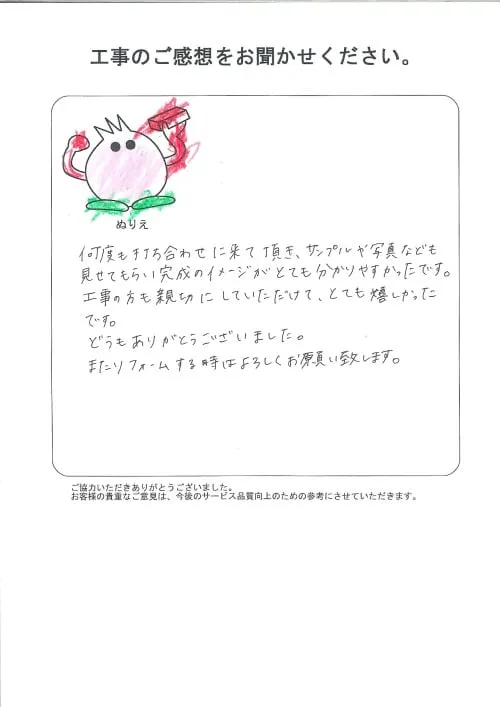 工事のご感想をお聞かせください。
ぬりえ
何度も打ち合わせに来て頂き、サンプルや写真なども
見せてもらい完成のイメージがとても分かりやすかったです。
工事の方も親切にしていただけて、とても嬉しかった
です。
どうもありがとうございました。
またリフォームする時はよろしくお願い致します。
ご協力いただきありがとうございました。
お客様の貴重なご意見は、今後のサービス品質向上のための参考にさせていただきます。